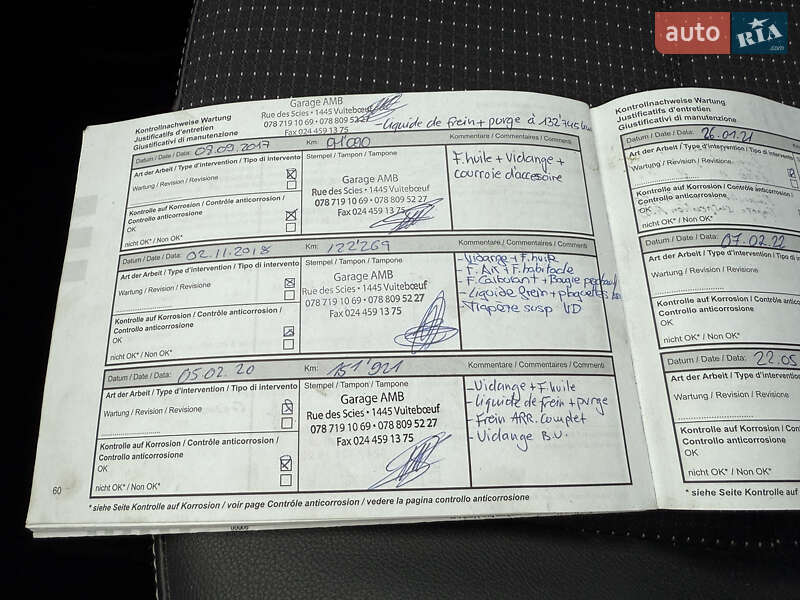 auto RIA.com
Garage AMB
Rue des Scies • 1445 Vuitebœuf
078 719 10 69 • 078 809 52 27
Fax 024 459 13 75
Liquide de frein + purge à 132'745 km
Kontrollnachweise Wartung
Justificatifs d'entretien
Giustificativi di manutenzione
Datum / Date / Data: 09.2017
Km: 91'090
Kommentare / Commentaires / Commenti
Art der Arbeit / Type d'intervention / Tipo di intervento
Wartung / Revision / Revisione
Kontrolle auf Korrosion / Contrôle anticorrosion /
Controllo anticorrosione
OK
nicht OK* / Non OK*
Stempel / Tampon / Tampone
Garage AMB
Rue des Scies • 1445 Vuitebœuf
078 719 10 69 • 078 809 52 27
Fax 024 459 13 75
F.huile + Vidange +
courroie d'accesoire
Datum / Date / Data: 02.11.2018
Km: 122'269
Kommentare / Commentaires / Commenti
Art der Arbeit / Type d'intervention / Tipo di intervento
Wartung / Revision / Revisione
Kontrolle auf Korrosion / Contrôle anticorrosion /
Controllo anticorrosione
OK
nicht OK* / Non OK*
Stempel / Tampon / Tampone
Garage AMB
Rue des Scies • 1445 Vuitebœuf
078 719 10 69 • 078 809 52 27
Fax 024 459 13 75
- Vidange + F.huile
- F. Air + F.habitacle
- F. Carburant + Bougie
- Liquide frein + plaquettes
- Trapère susp
Datum / Date / Data: 05.02.20
Km: 151'921
Kommentare / Commentaires / Commenti
Art der Arbeit / Type d'intervention / Tipo di intervento
Wartung / Revision / Revisione
Kontrolle auf Korrosion / Contrôle anticorrosion /
Controllo anticorrosione
OK
nicht OK* / Non OK*
Stempel / Tampon / Tampone
Garage AMB
Rue des Scies • 1445 Vuitebœuf
078 719 10 69 • 078 809 52 27
Fax 024 459 13 75
- Vidange + F.huile
- Liquide de frein + purge
- Frein ARR. complet
- Vidange B.V.
60
* siehe Seite Kontrolle auf Korrosion / voir page Contrôle anticorrosion / vedere la pagina controllo anticorrosione
Kontrollnachweise Wartung
Justificatifs d'entretien
Giustificativi di manutenzione
Datum / Date / Data: 26.01.21
Art der Arbeit / Type d'intervention
Wartung / Revision / Revisione
Kontrolle auf Korrosion / Contrôle
Controllo anticorrosione
OK
nicht OK* / Non OK*
Datum / Date / Data: 07.02.22
Art der Arbeit / Type d'intervention
Wartung / Revision / Revisione
Kontrolle auf Korrosion / Contrôle
Controllo anticorrosione
OK
nicht OK* / Non OK*
Datum / Date / Data: 22.05
Art der Arbeit / Type d'intervention
Wartung / Revision / Revisione
Kontrolle auf Korrosion / Contrôle
Controllo anticorrosione
OK
nicht OK* / Non OK*
* siehe Seite Kontrolle auf